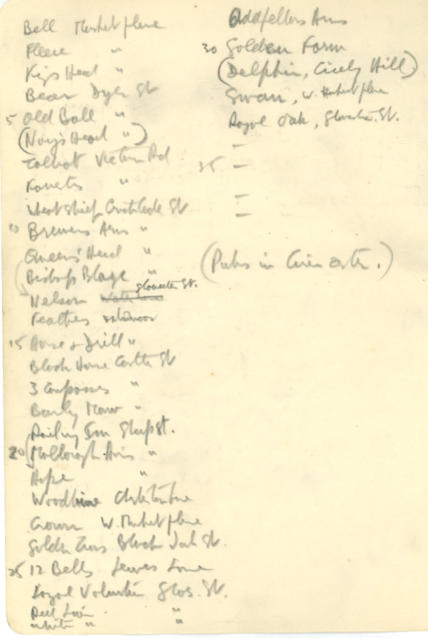 Bell Market place
Fleece "
King's Head "
Bear Dyer St
5 Old Ball "
(Nag's Head ")
Talbot Victoria Rd
"
Wheatsheaf Cricklade St
10 Brewers Arms "
Queens' Head "
(Bishop Blaze "
Nelson Gloucester St.
Feathers
15 "
Black Horse Castle St
3 Compasses "
Barly Mow "
Railway Inn Sheep St.
20 Arms "
Hope "
Woodbine Chesterton Lane
Crown W. Market place
Golden Cross Black Jack St.
25 12 Bells Lewis Lane
Royal Volunteer Glos. St.
Red Lion "
White " "
Oddfellows Arms
30 Golden Farm
(Dolphin, Cicely Hill)
Swan, W. Market place
Royal Oak, Gloucester St.
-
35 -
-
-
(Pubs in Cirencester.)